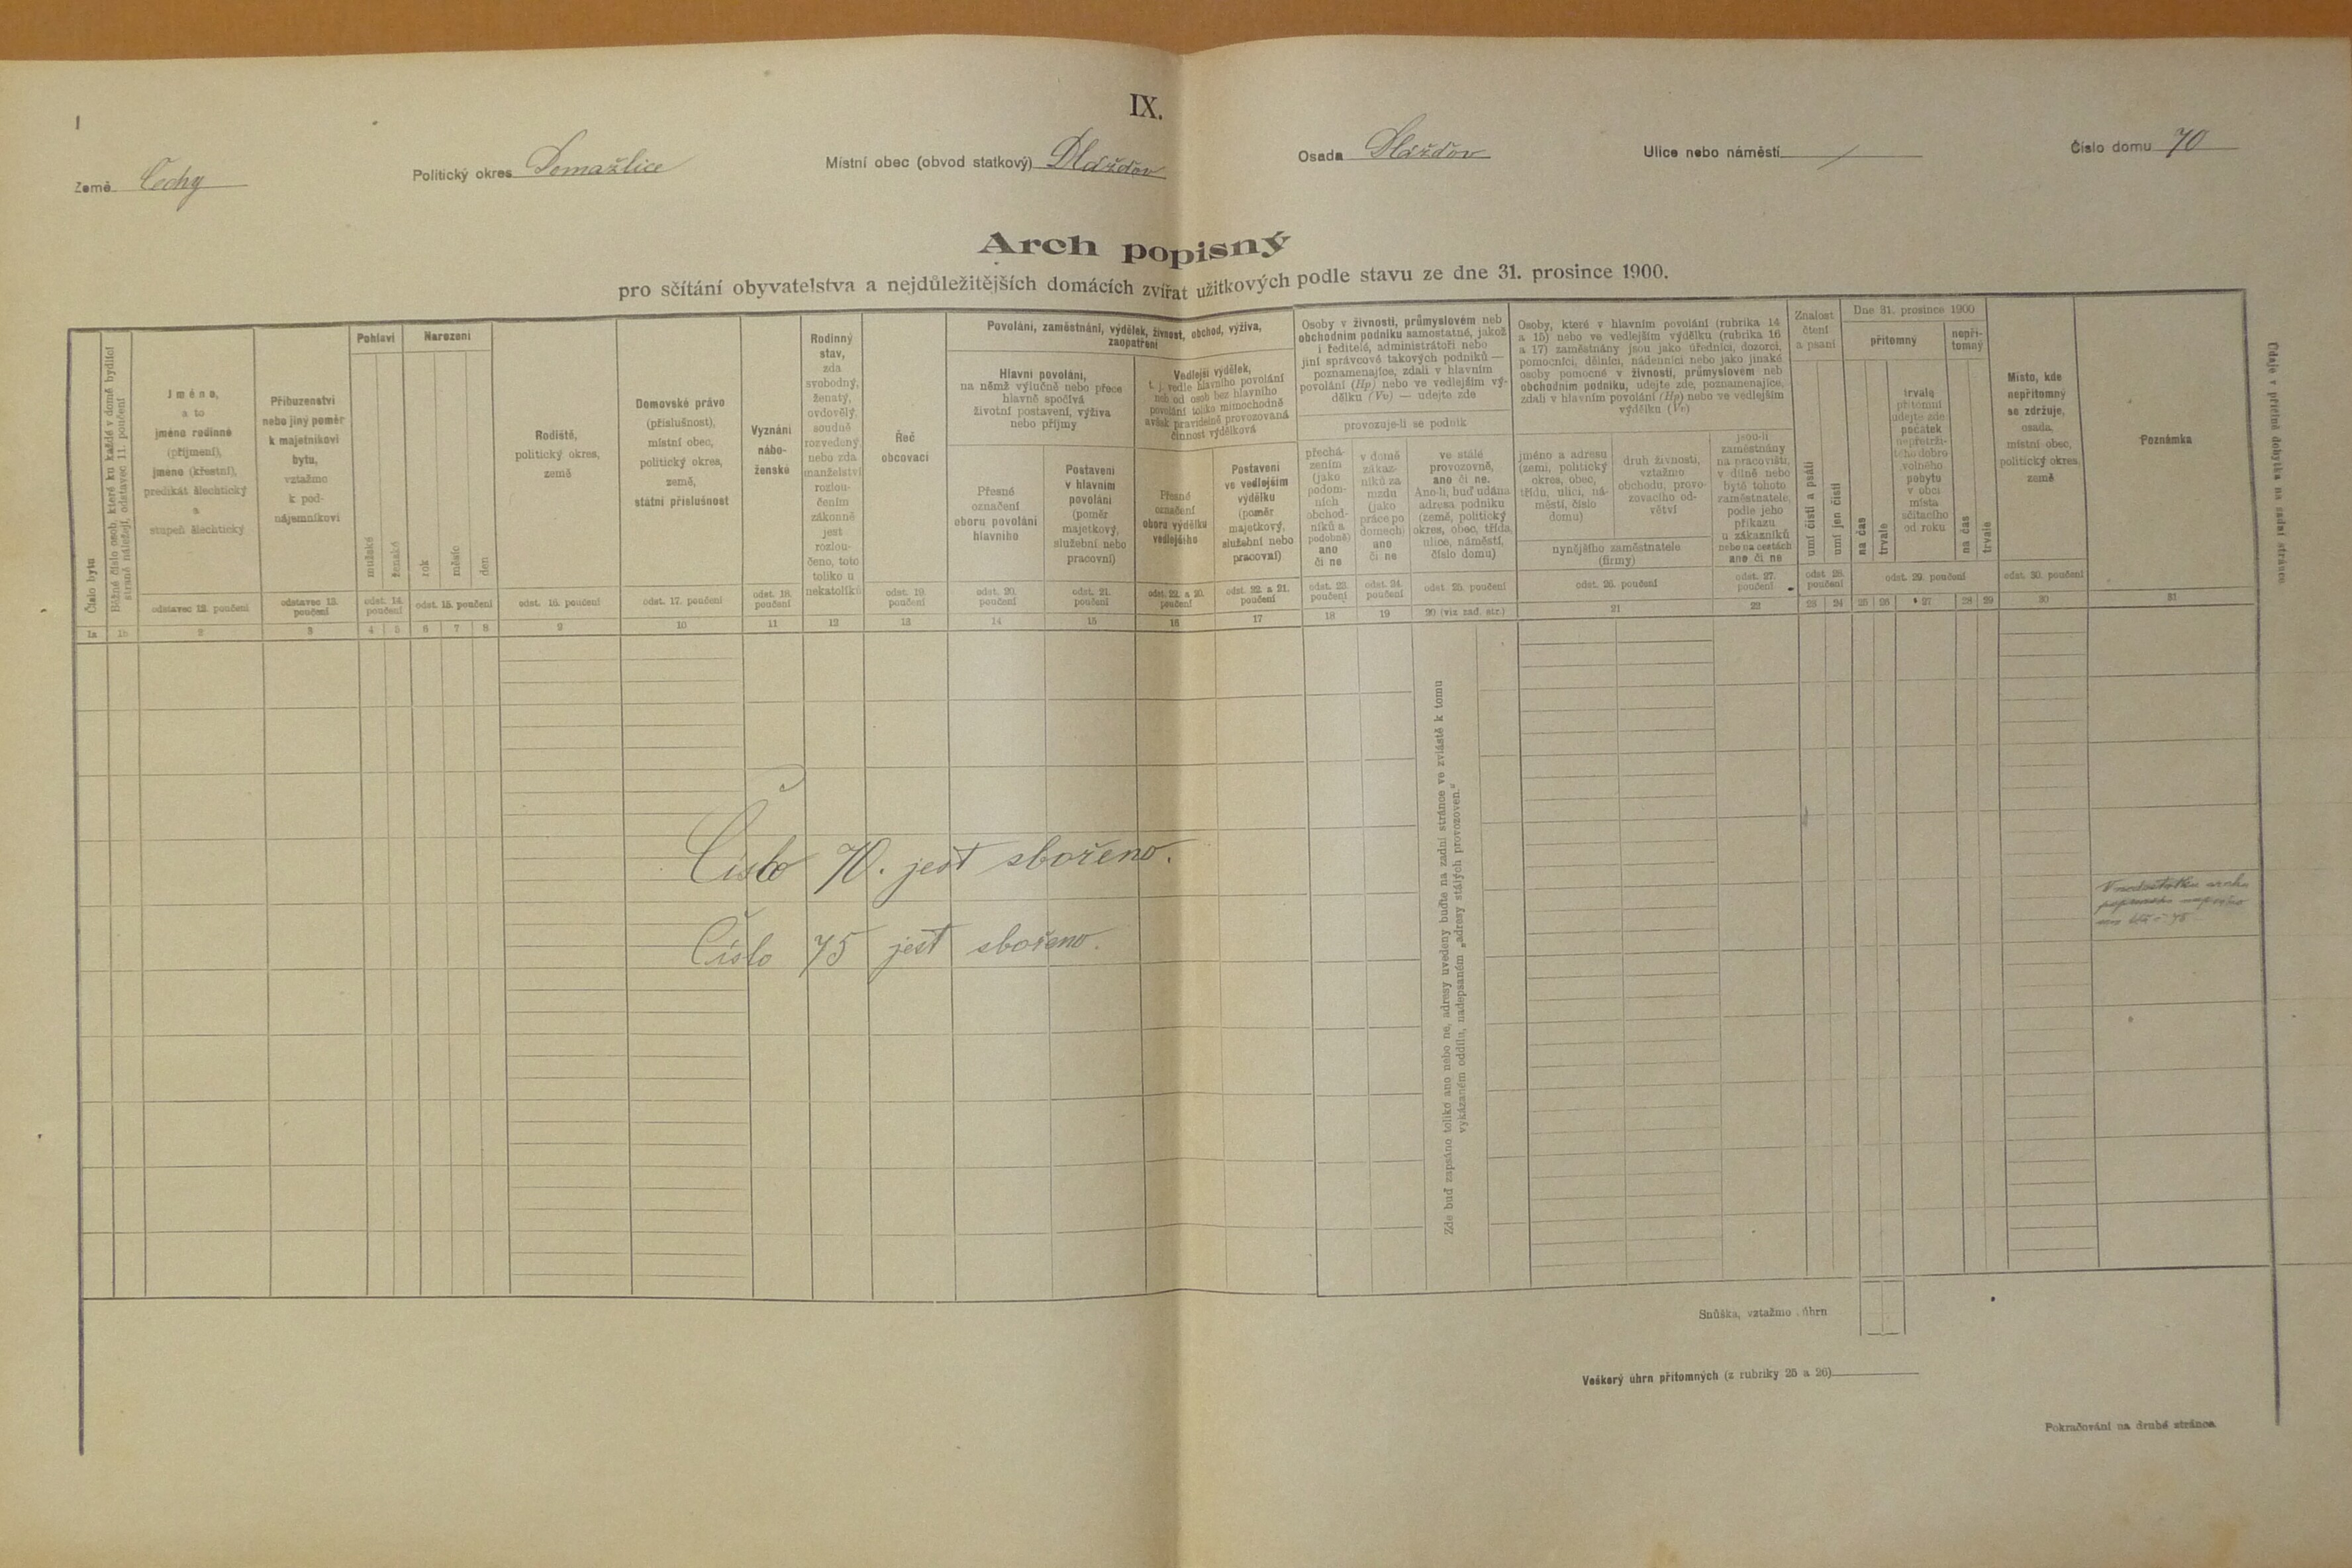 IX.
Země Čechy Politický okres Domažlice Místní obec (obvod statkový) Dlážďov Osada Dlážďov Ulice nebo náměstí / Číslo domu 70
Arch popisný
pro sčítání obyvatelstva a nejdůležitějších domácích zvířat užitkových podle stavu ze dne 31. prosince 1900.
Číslo bytu
Běžné číslo osob, které ku každé v domě bydlící straně náležejí, odstavec 11. poučení
Jméno,
a to
jméno rodinné
(příjmení),
jméno (křestní),
predikát šlechtický
a
stupeň šlechtický
odstavec 12. poučení
Příbuzenství
nebo jiný poměr
k majetníkovi
bytu,
vztažmo
k pod-
nájemníkovi
odstavec 13.
poučení
Pohlaví
mužské
ženské
odst. 14.
poučení
Narození
rok
měsíc
den
odst. 15. poučení
Rodiště,
politický okres,
země
odst. 16. poučení
Domovské právo
(příslušnost),
místní obec,
politický okres,
země,
státní příslušnost
odst. 17. poučení
Vyznání
nábo-
ženské
odst. 18.
poučení
Rodinný
stav,
zda
svobodný,
ženatý,
ovdovělý,
soudně
rozvedený
nebo zda
manželství
rozlou-
čením
zákonně
jest
rozlou-
čeno, toto
toliko u
nekatolíků
Řeč
obcovací
odst. 19.
poučení
Povolání, zaměstnání, výdělek, živnost, obchod, výživa,
zaopatření
Hlavní povolání,
na němž výlučně nebo přece
hlavně spočívá
životní postavení, výživa
nebo příjmy
Přesné
označení
oboru povolání
hlavního
odst. 20.
poučení
Postavení
v hlavním
povolání
(poměr
majetkový,
služební nebo
pracovní)
odst. 21.
poučení
Vedlejší výdělek,
t. j. vedle hlavního povolání
neb od osob bez hlavního
povolání toliko mimochodně
avšak pravidelně provozovaná
činnost výdělková
Přesné
označení
oboru výdělku
vedlejšího
odst. 22. a 20.
poučení
Postavení
ve vedlejším
výdělku
(poměr
majetkový,
služební nebo
pracovní)
odst. 22. a 21.
poučení
Osoby v živnosti, průmyslovém neb
obchodním podniku samostatné, jakož
i ředitelé, administrátoři nebo
jiní správcové takových podniků —
poznamenajíce, zdali v hlavním
povolání (Hp) nebo ve vedlejším vý-
dělku (Vv) — udejte zde
provozuje-li se podnik
přechá-
zením
(jako
podom-
ních
obchod-
níků a
podobně)
ano
či ne
odst. 23.
poučení
v domě
zákaz-
níků za
mzdu
(jako
práce po
domech)
ano
či ne
odst. 24.
poučení
ve stálé
provozovně,
ano či ne.
Ano-li, buď udána
adresa podniku
(země, politický
okres, obec, třída,
ulice, náměstí,
číslo domu)
odst 25. poučení
Osoby, které v hlavním povolání (rubrika 14
a 15) nebo ve vedlejším výdělku (rubrika 16
a 17) zaměstnány jsou jako úředníci, dozorci,
pomocníci, dělníci, nádenníci nebo jako jinaké
osoby pomocné v živnosti, průmyslovém neb
obchodním podniku, udejte zde, poznamenajíce,
zdali v hlavním povolání (Hp) nebo ve vedlejším
výdělku (Vv)
jméno a adresu
(zemi, politický
okres, obec,
třídu, ulici, ná-
městí, číslo
domu)
druh živnosti,
vztažmo
obchodu, provo-
zovacího od-
větví
nynějšího zaměstnatele
(firmy)
odst. 26. poučení
jsou-li
zaměstnány
na pracovišti,
v dílně nebo
bytě tohoto
zaměstnatele,
podle jeho
příkazu
u zákazníků
nebo na cestách
ano či ne
odst. 27.
poučení
Znalost
čtení
a psaní
umí čísti a psáti
umí jen čísti
odst 28.
poučení
Dne 31. prosince 1900
přítomný
nepří-
tomný
na čas
trvale
trvale
přítomní
udejte zde
počátek
nepřetrži-
tého dobro-
volného
pobytu
v obci
místa
sčítacího
od roku
na čas
trvale
odst. 29. poučení
Místo, kde
nepřítomný
se zdržuje,
osada,
místní obec,
politický okres,
země
odst. 30. poučení
Poznámka
1a 1b 2 3 4 5 6 7 8 9 10 11 12 13 14 15 16 17 18 19 20 (viz zad. str.) 21 22 23 24 25 26 27 28 29 30 31
Zde buď zapsáno toliko ano nebo ne, adresy uvedeny buďte na zadní stránce ve zvláště k tomu
vykázaném oddílu, nadepsaném „adresy stálých provozoven."
Číslo 70. jest sbořeno.
Číslo 75 jest sbořeno.
V nedostatku archu
Snůška, vztažmo úhrn
Veškerý úhrn přítomných (z rubriky 25 a 26)
Pokračování na druhé stránce
Údaje v příčině dobytka na zadní stránce